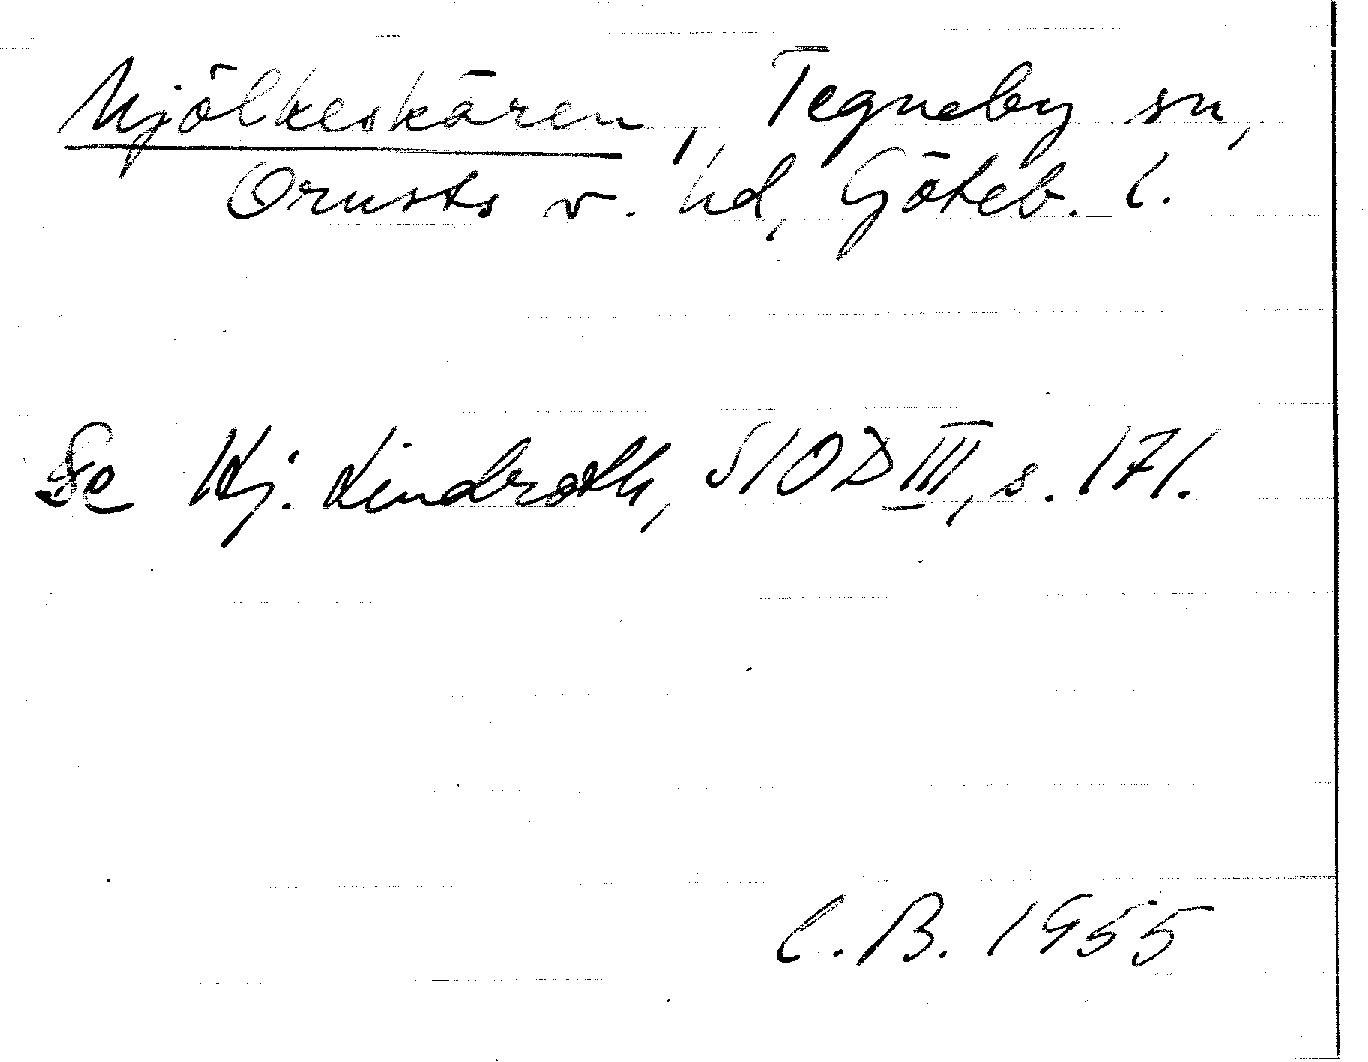 Mjölkeskären, Tegneby sn,
Orusts v. hd, Göteb. l.
Se Hj. Lindroth, SIOD III, s. 171.
C.B. 1955